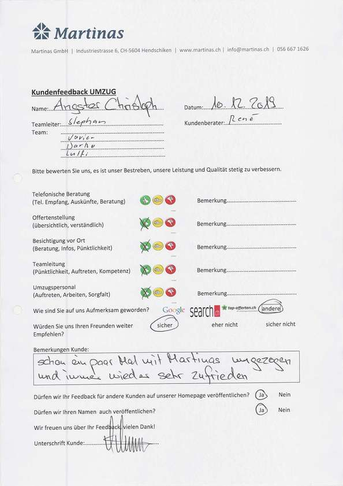 Martinas
Martinas GmbH | Industriestrasse 6, CH-5604 Hendschiken | www.martinas.ch | info@martinas.ch | 056 667 1626
Kundenfeedback UMZUG
Name: Angster Christoph Datum: 10.12.2019
Teamleiter: Stephan Kundenberater: René
Team: Javier
Darko
Lutfi
Bitte bewerten Sie uns, es ist unser Bestreben, unsere Leistung und Qualität stetig zu verbessern.
Telefonische Beratung
(Tel. Empfang, Auskünfte, Beratung) Bemerkung
Offertenstellung
(übersichtlich, verständlich) Bemerkung
Besichtigung vor Ort
(Beratung, Infos, Pünktlichkeit) Bemerkung
Teamleitung
(Pünktlichkeit, Auftreten, Kompetenz) Bemerkung
Umzugspersonal
(Auftreten, Arbeiten, Sorgfalt) Bemerkung
Wie sind Sie auf uns Aufmerksam geworden? Google search top-offerten.ch andere
Würden Sie uns Ihren Freunden weiter sicher eher nicht sicher nicht
Empfehlen?
Bemerkungen Kunde:
schon ein paar Mal mit Martinas umgezogen
und immer wieder sehr zufrieden
Dürfen wir Ihr Feedback für andere Kunden auf unserer Homepage veröffentlichen? Ja Nein
Dürfen wir Ihren Namen auch veröffentlichen? Ja Nein
Wir freuen uns über Ihr Feedback, vielen Dank!
Unterschrift Kunde: